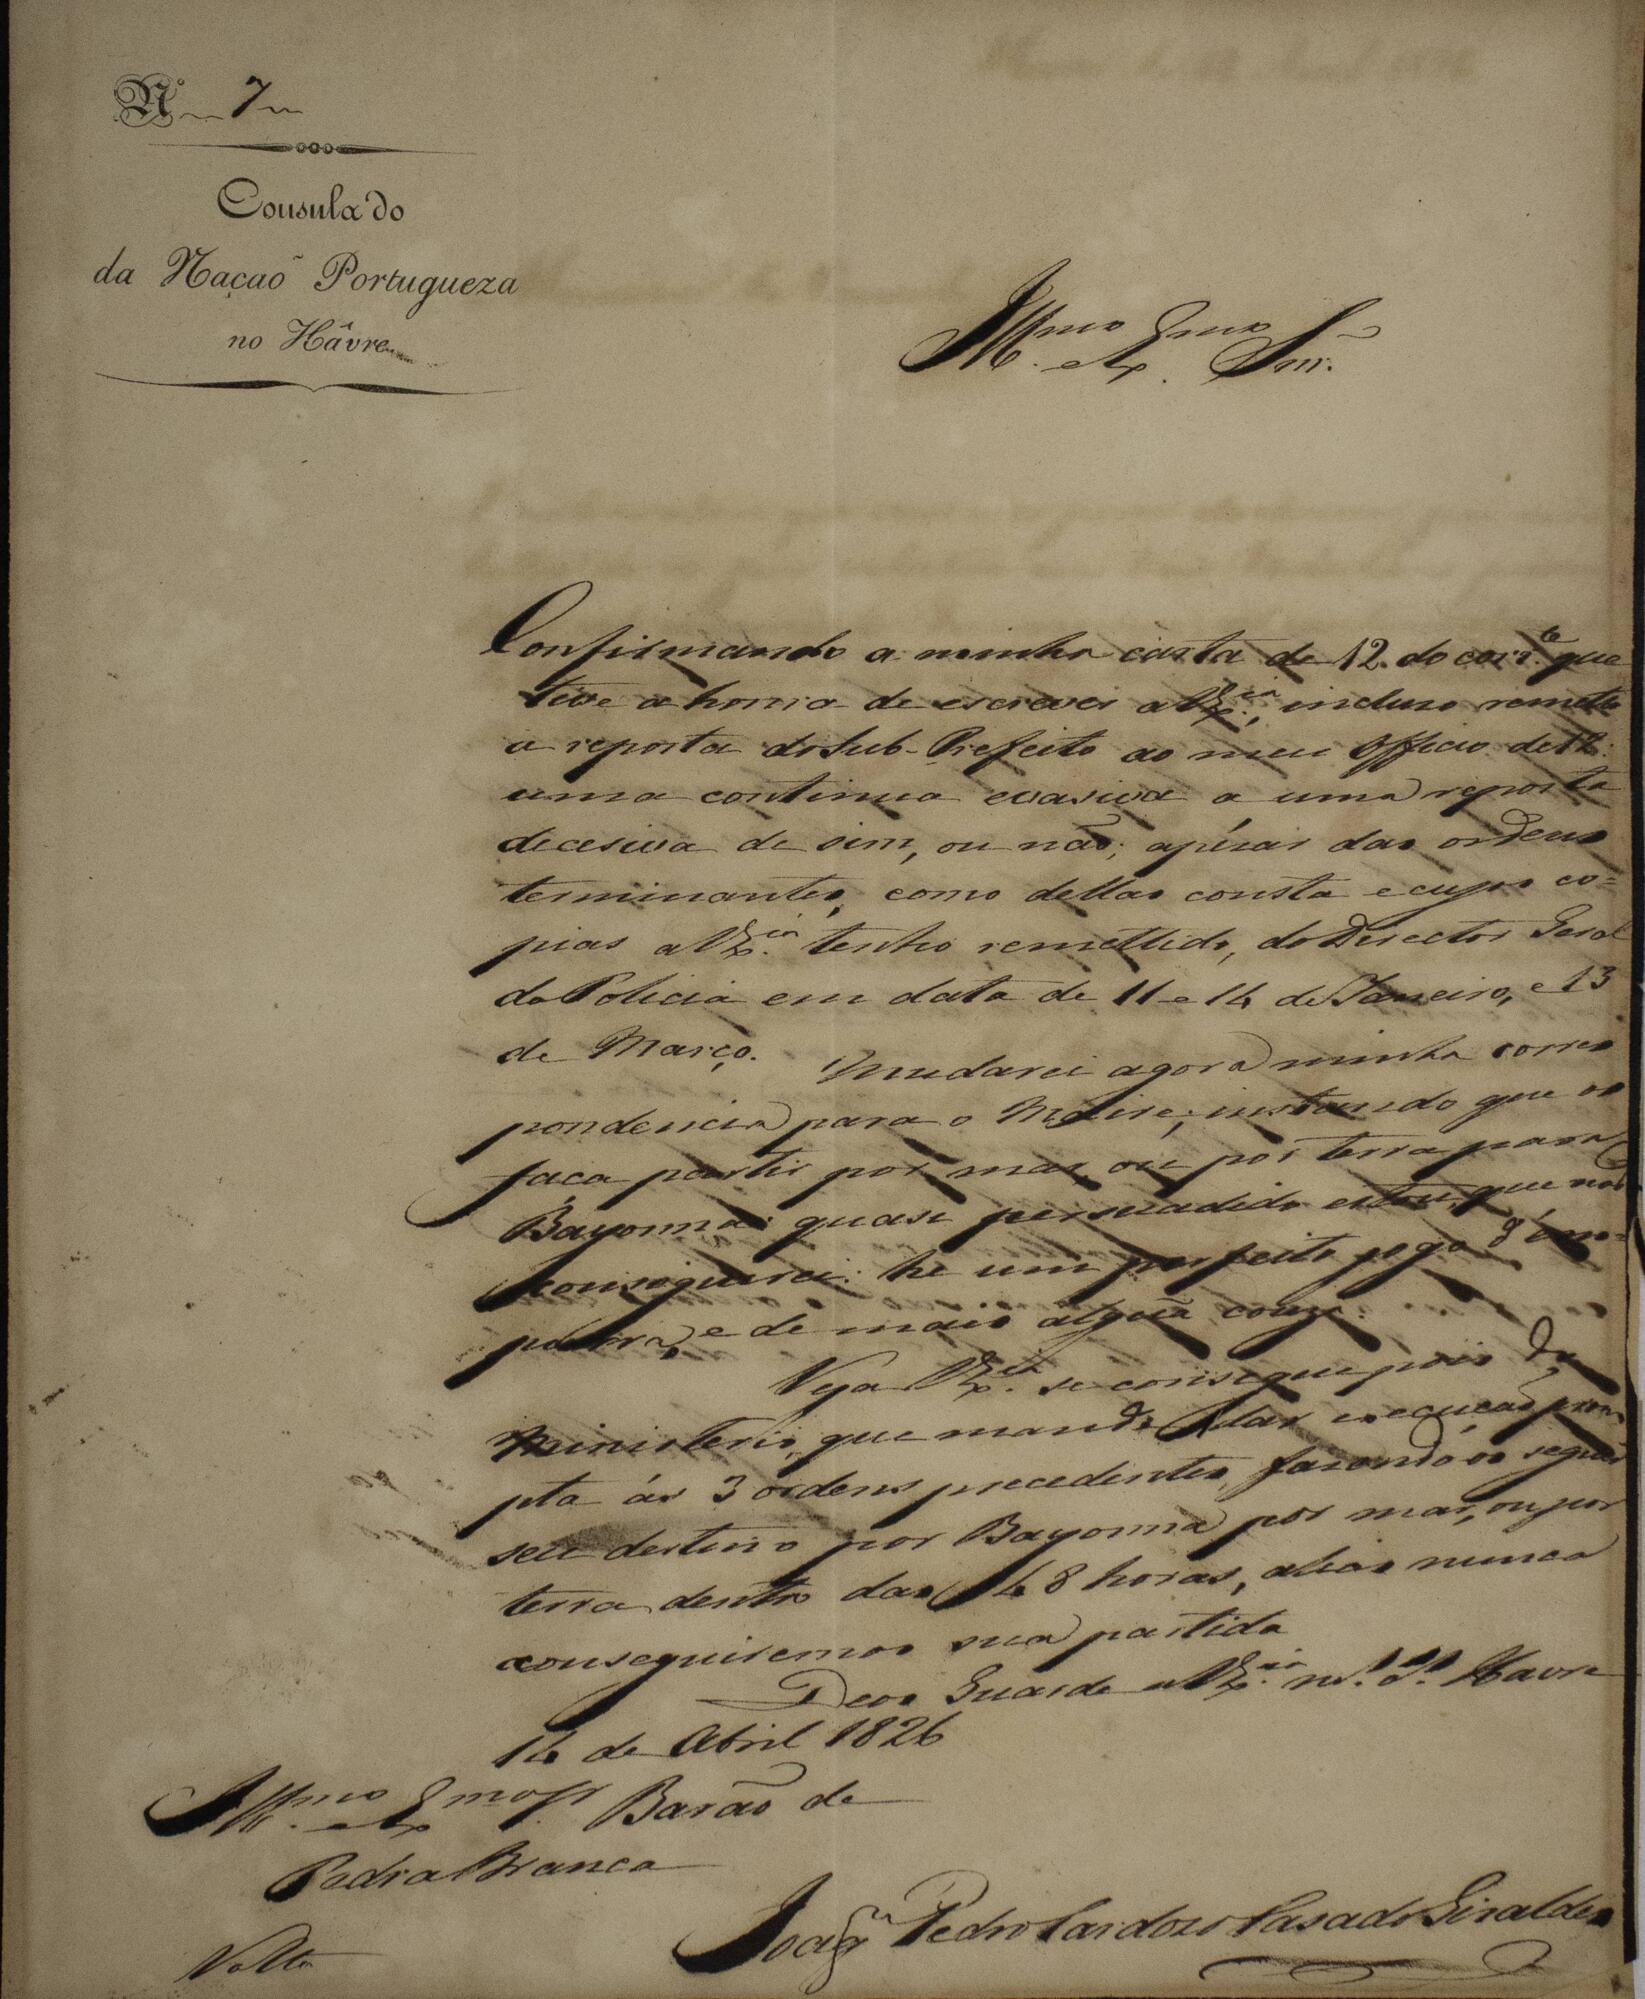 Nº 7
Consulado
da Naçaõ Portugueza
no Hâvre
Illmo e Exmo Snr.
Confirmando a minha carta de 12. do corr.te que
tive a honra de escrever a V.Ex.cia, incluso remetto
a reposta do Sub-Prefeito ao meu Officio de 12:
uma continua evasiva a uma reposta
decesiva de sim, ou não; apézar das ordens
terminantes, como dellas consta e cujas co=
pias a V.Ex.cia tenho remettido, do Director Geral
da Policia em data de 11 e 14 de Janeiro, e 13
de Março. Mudarei agora minha corres
pondencia para o Maire, instando que os
faca partir por mar, ou por terra para
Bayonna: quasi persuadido estou, que não
conseguirei: he um perfeito jogo d'em=
purra, e de mais algũa couza.
Veja V.Ex.cia se consegue pois do
Ministerio, que mande dar execuçaõ prom
pta ás 3 ordens precedentes, fazendo os seguir
seu destino por Bayonna por mar, ou por
terra dentro das 48 horas, alias nunca
conseguiremos sua partida
Deos Guarde a V.Ex.cia m.s a.s Havre
14 de Abril 1826
Illmo e Exmo Sr. Barão de
Pedra Branca
Joaqm Pedro Cardozo Casado Giraldes
Volta